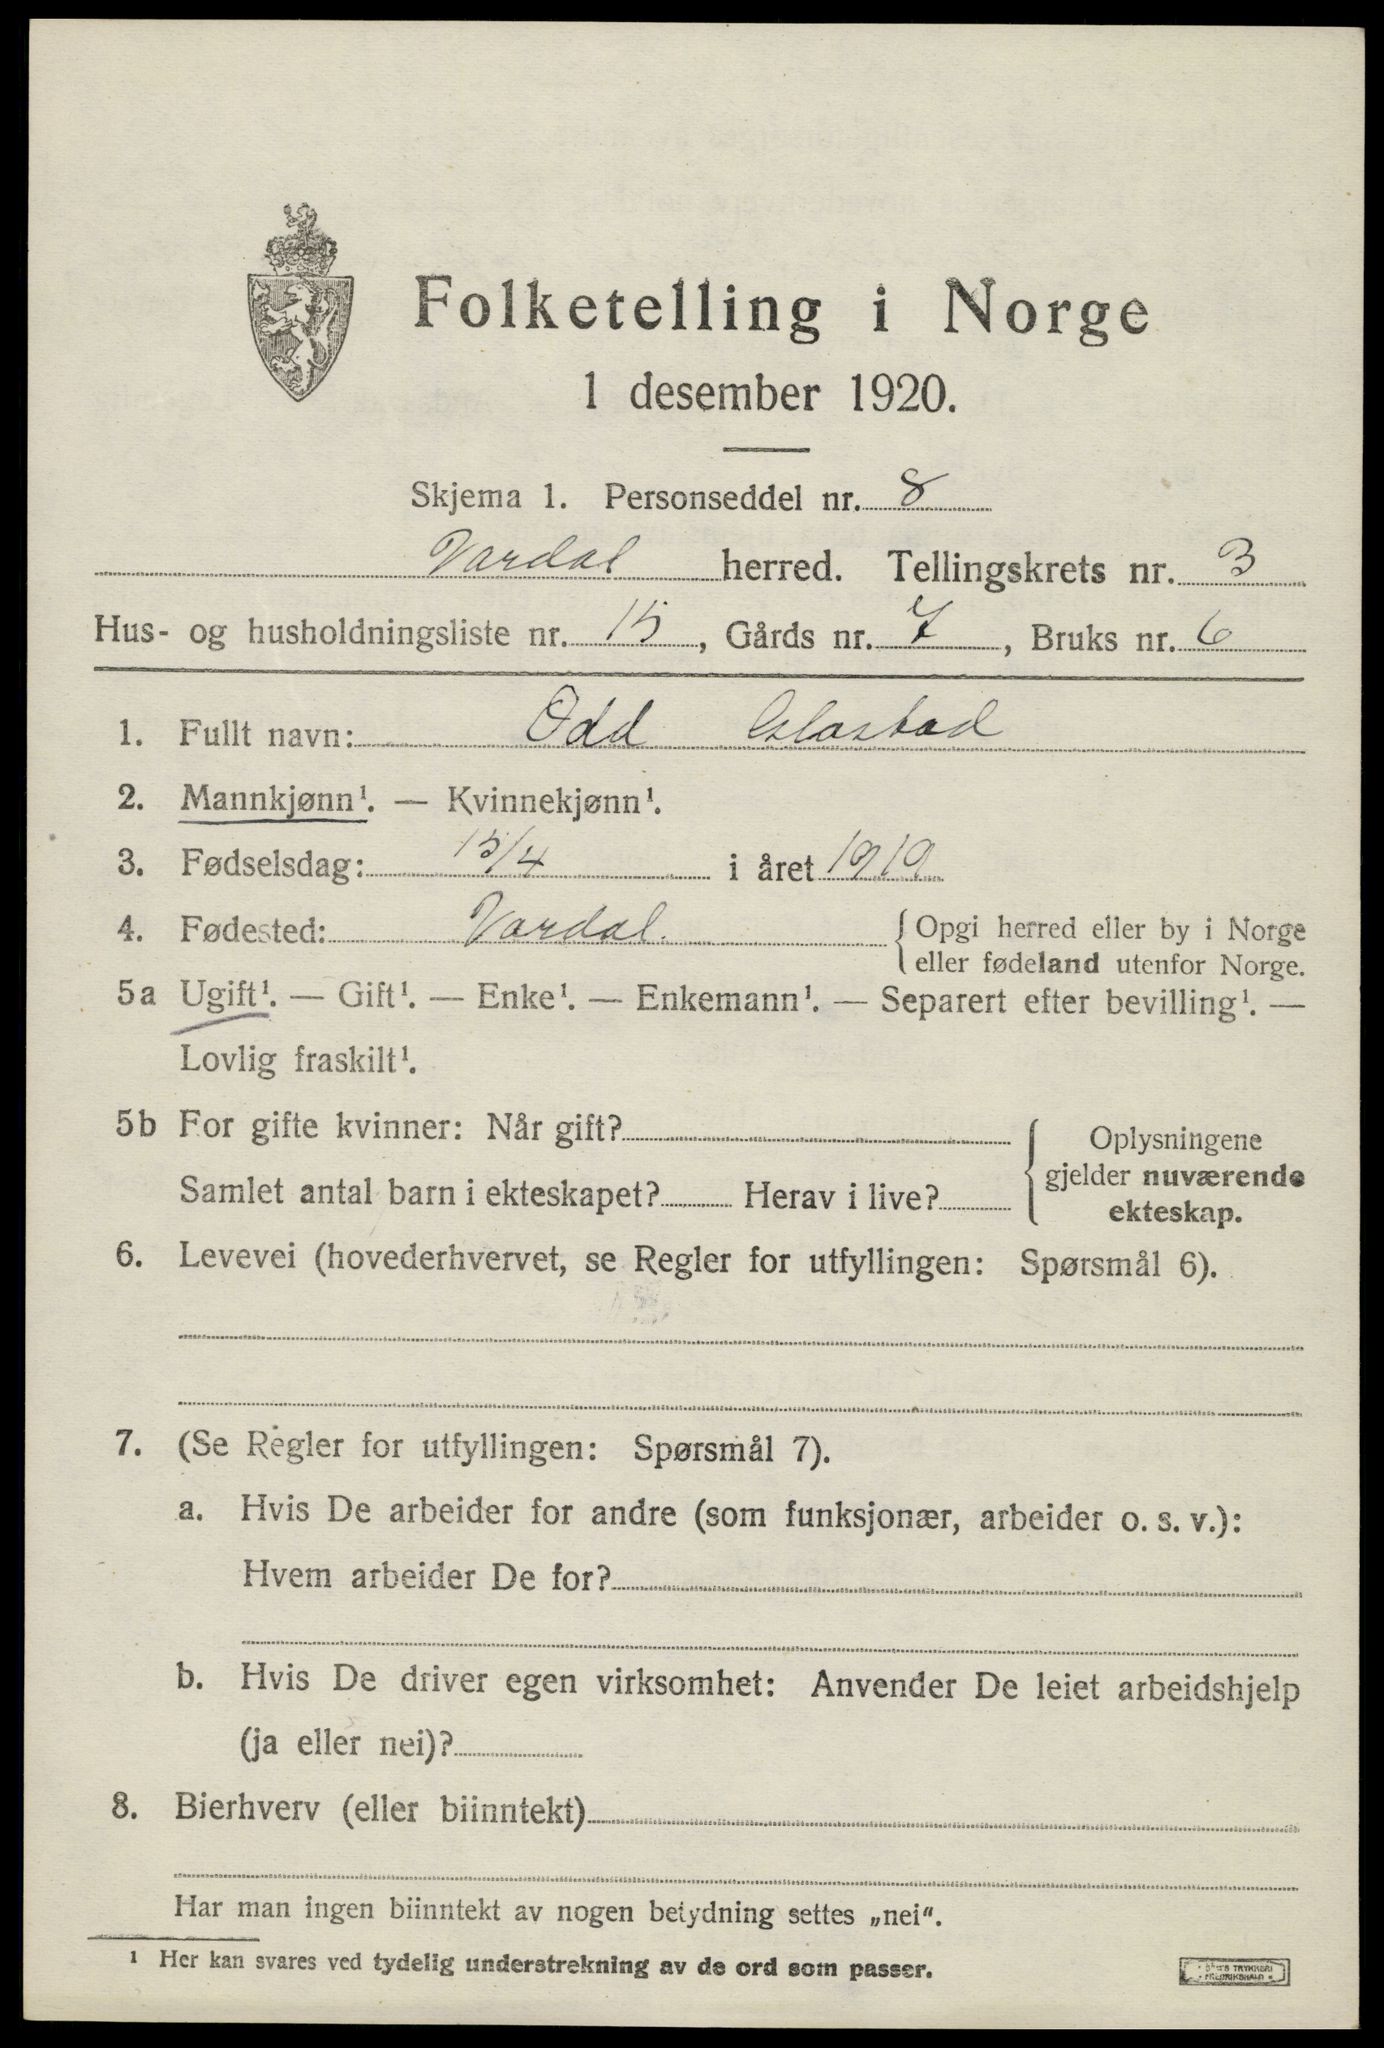 Folketelling i Norge
1 desember 1920.
Skjema 1. Personseddel nr. 8
Vardal herred. Tellingskrets nr. 3
Hus- og husholdningsliste nr. 15, Gårds nr. 7, Bruks nr. 6
1. Fullt navn: Odd
2. Mannkjønn¹. — Kvinnekjønn¹.
3. Fødselsdag: 15/4 i året 1919
4. Fødested: Vardal. { Opgi herred eller by i Norge
eller fødeland utenfor Norge.
5a Ugift¹. — Gift¹. — Enke¹. — Enkemann¹. — Separert efter bevilling¹. —
Lovlig fraskilt¹.
5b For gifte kvinner: Når gift?
Samlet antal barn i ekteskapet? Herav i live?
Oplysningene
gjelder nuværende
ekteskap.
6. Levevei (hovederhvervet, se Regler for utfyllingen: Spørsmål 6).
7. (Se Regler for utfyllingen: Spørsmål 7).
a. Hvis De arbeider for andre (som funksjonær, arbeider o. s. v.):
Hvem arbeider De for?
b. Hvis De driver egen virksomhet: Anvender De leiet arbeidshjelp
(ja eller nei)?
8. Bierhverv (eller biinntekt)
Har man ingen biinntekt av nogen betydning settes „nei“.
¹ Her kan svares ved tydelig understrekning av de ord som passer.
TRYKKERI
FREDRIKSHALD